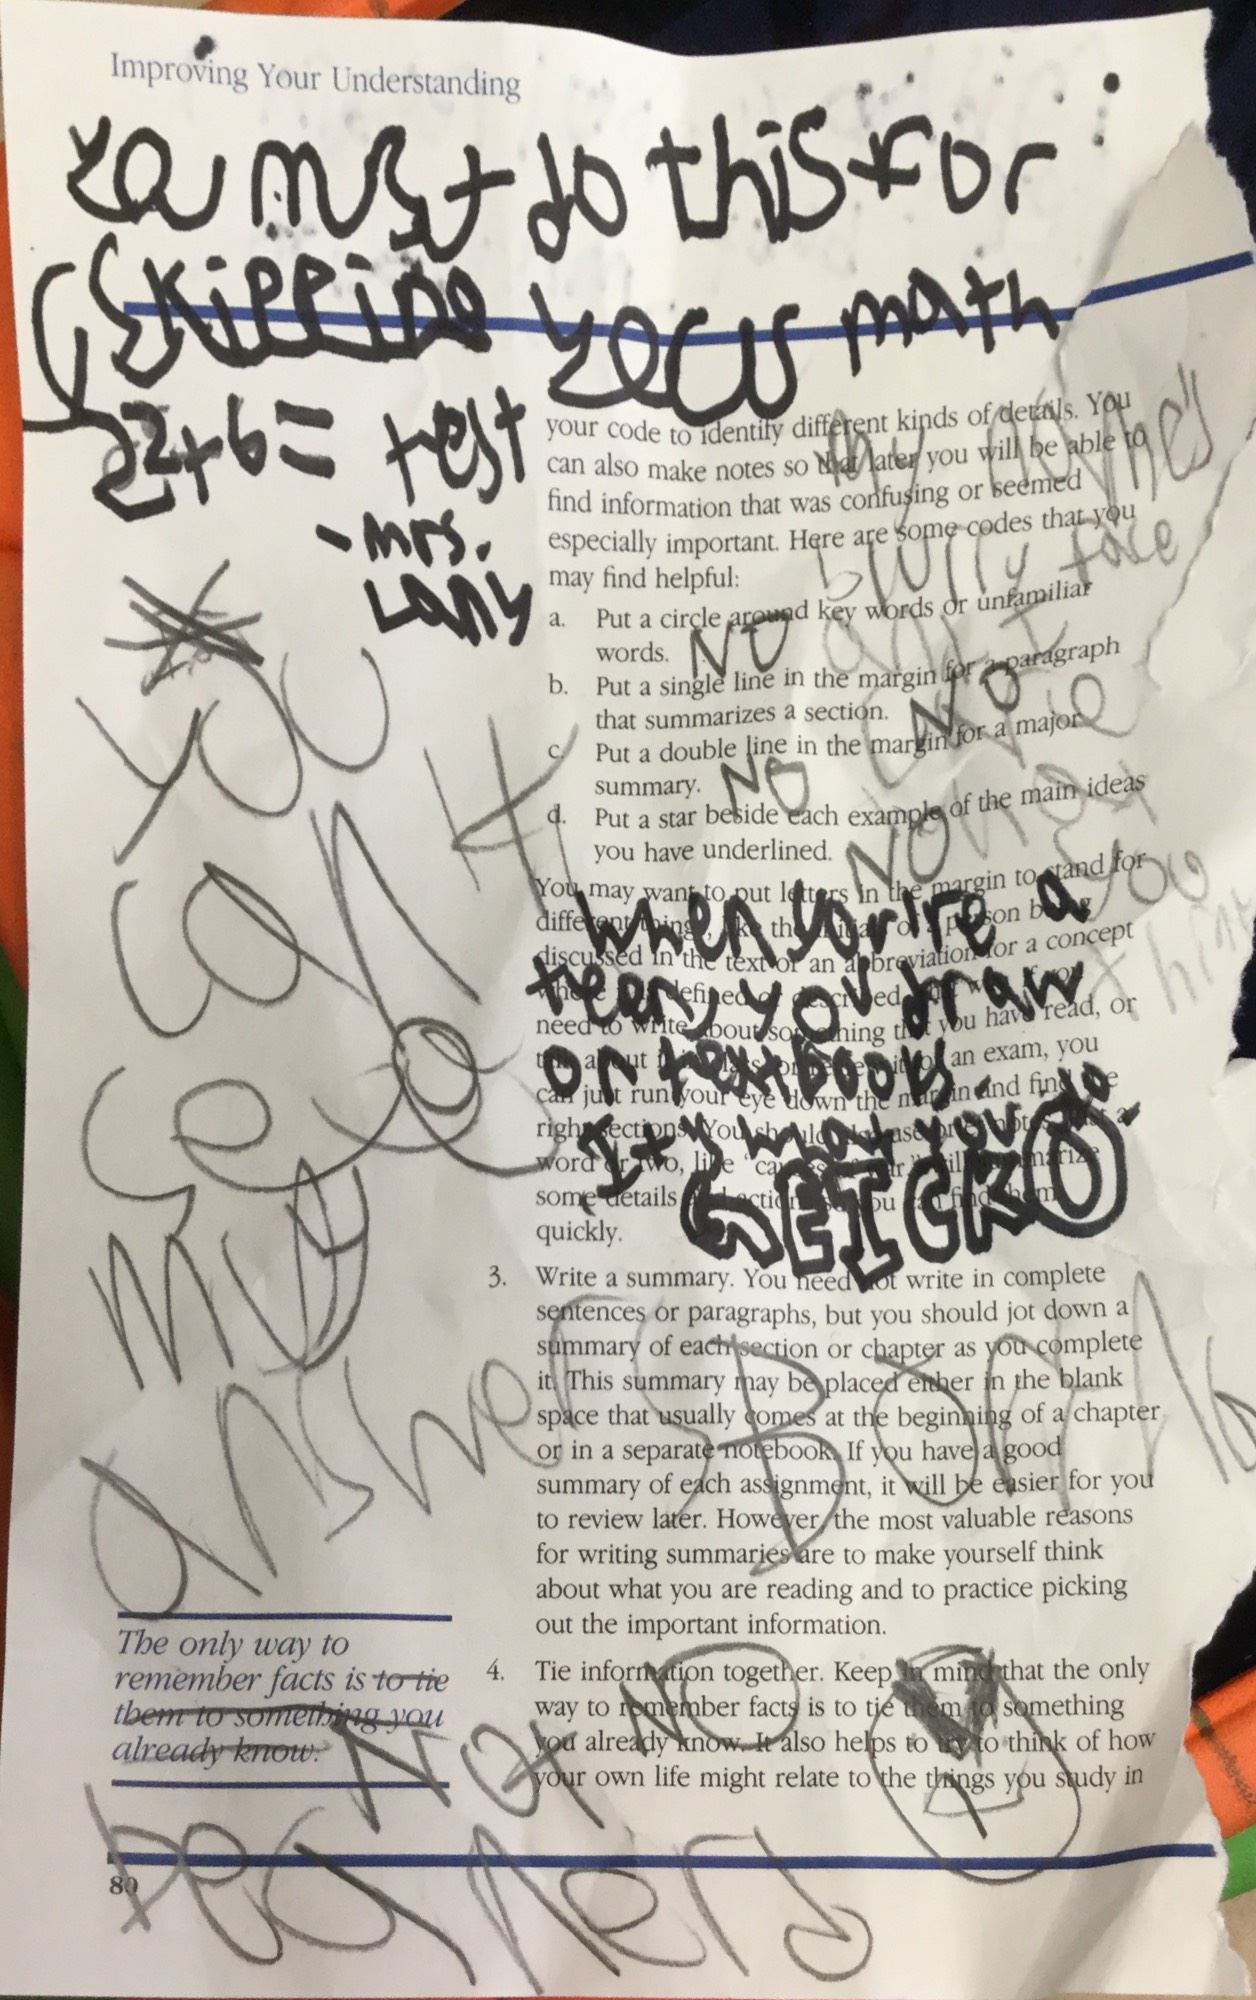 Improving Your Understanding
You must do this for
skipping your math
22+6= test
-mrs.
Lany
your code to identify different kinds of details. You
can also make notes so that later you will be able to
find information that was confusing or seemed
especially important. Here are some codes that you
may find helpful:
my name's
blurry face
and I
care
what
you
think
a. Put a circle around key words or unfamiliar
words. NO
b. Put a single line in the margin for a paragraph
that summarizes a section. NO
c. Put a double line in the margin for a major
summary. NO
d. Put a star beside each example of the main ideas
you have underlined. NO
You may want to put letters in the margin to stand for
different things, like the initials of a person being
discussed in the text or an abbreviation for a concept
defined or described
need to write about something that you have read, or
an exam, you
can just run your eye down the margin and find the
right sections. You should
word or two, like
some details
quickly.
When your're a
teen, you draw
on textbooks.
It's what you do.
GEICKO
You
can't
get
my
answers
Bort
3. Write a summary. You need not write in complete
sentences or paragraphs, but you should jot down a
summary of each section or chapter as you complete
it. This summary may be placed either in the blank
space that usually comes at the beginning of a chapter
or in a separate notebook. If you have a good
summary of each assignment, it will be easier for you
to review later. However, the most valuable reasons
for writing summaries are to make yourself think
about what you are reading and to practice picking
out the important information.
The only way to
remember facts is to tie
them to something you
already know.
Not
be a nerd
4. Tie information together. Keep in mind that the only
way to remember facts is to tie them to something
you already know. It also helps to try to think of how
your own life might relate to the things you study in
NO
80